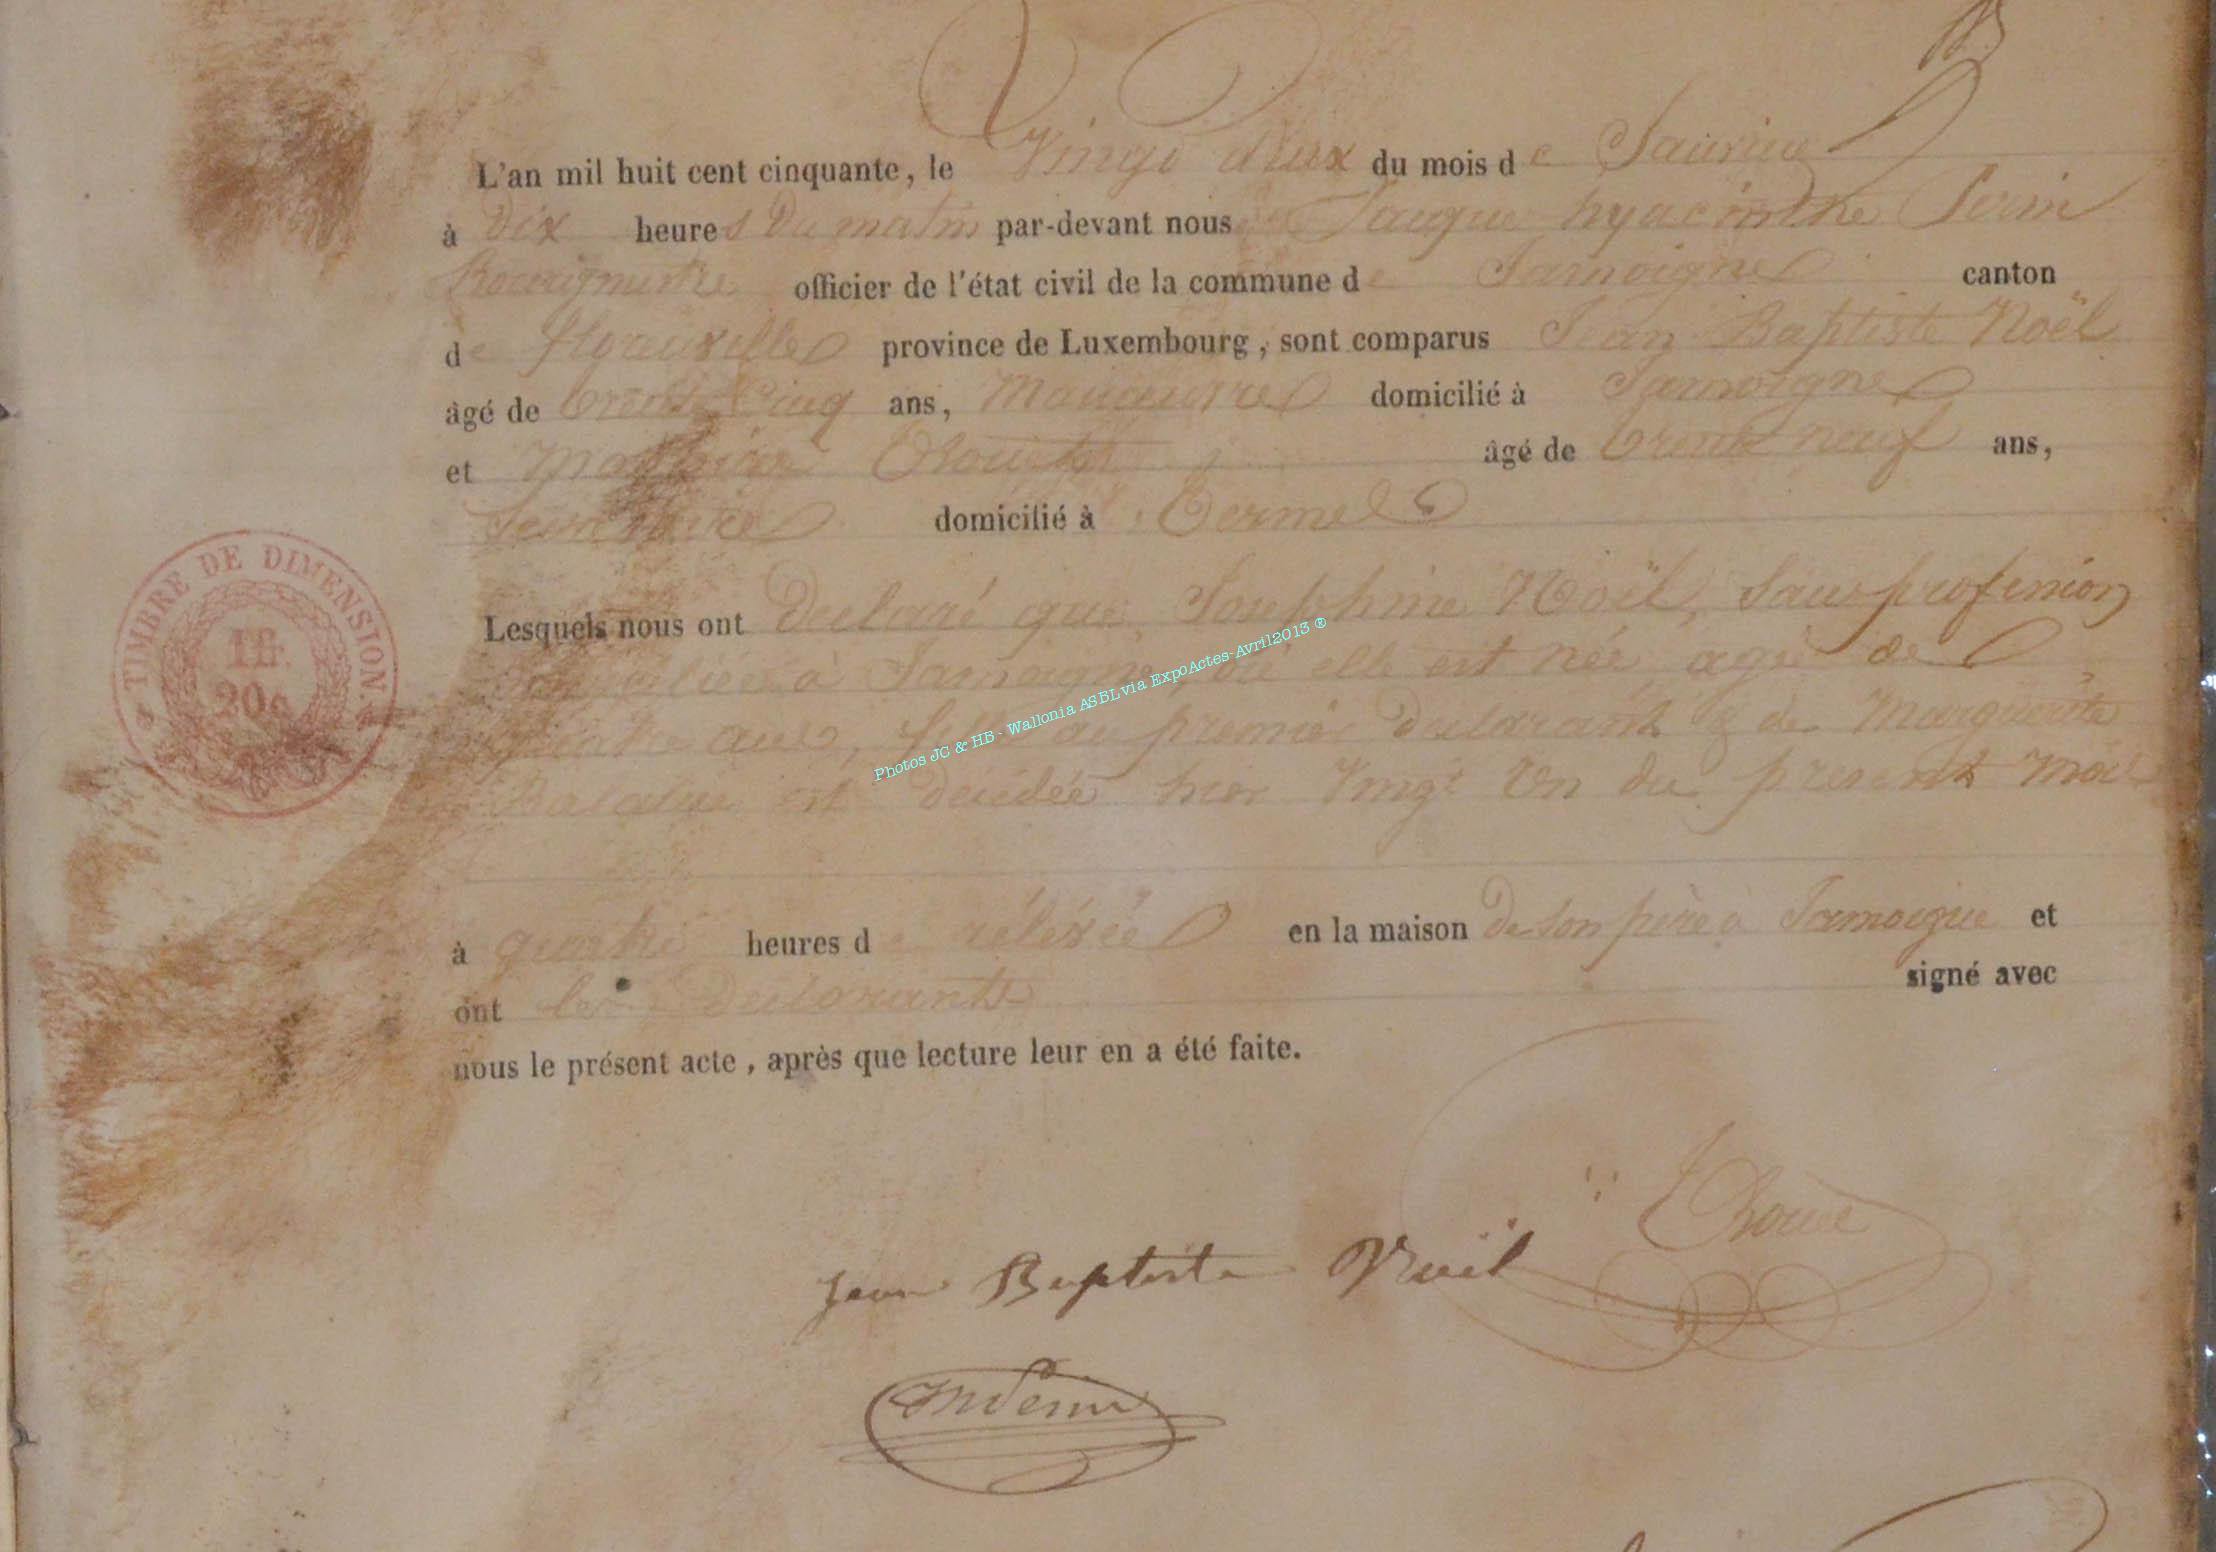 L'an mil huit cent cinquante, le Vingt deux du mois de Janvier
à Dix heures du matin par-devant nous Jacque hyacinthe Perin
Bourgmestre officier de l'état civil de la commune de Jamoigne canton
de florenville province de Luxembourg, sont comparus Jean Baptiste Noël
âgé de trente Cinq ans, Manœuvre domicilié à Jamoigne
et âgé de trente neuf ans,
domicilié à Termes
Lesquels nous ont declaré que Josephine Noël, Sans profession
domiciliée à Jamoigne, où elle est née, agée de
ans, fille du premier declarant & de Marguerite
est décédée hier Vingt Un du present mois
à quatre heures de rélévée en la maison de son père à Jamoigne et
ont les declarants signé avec
nous le présent acte, après que lecture leur en a été faite.
TIMBRE DE DIMENSION.
1fr.
20c
Jean Baptiste Noël
Photos JC & HB - Wallonia ASBL via ExpoActes-Avril2013 ®